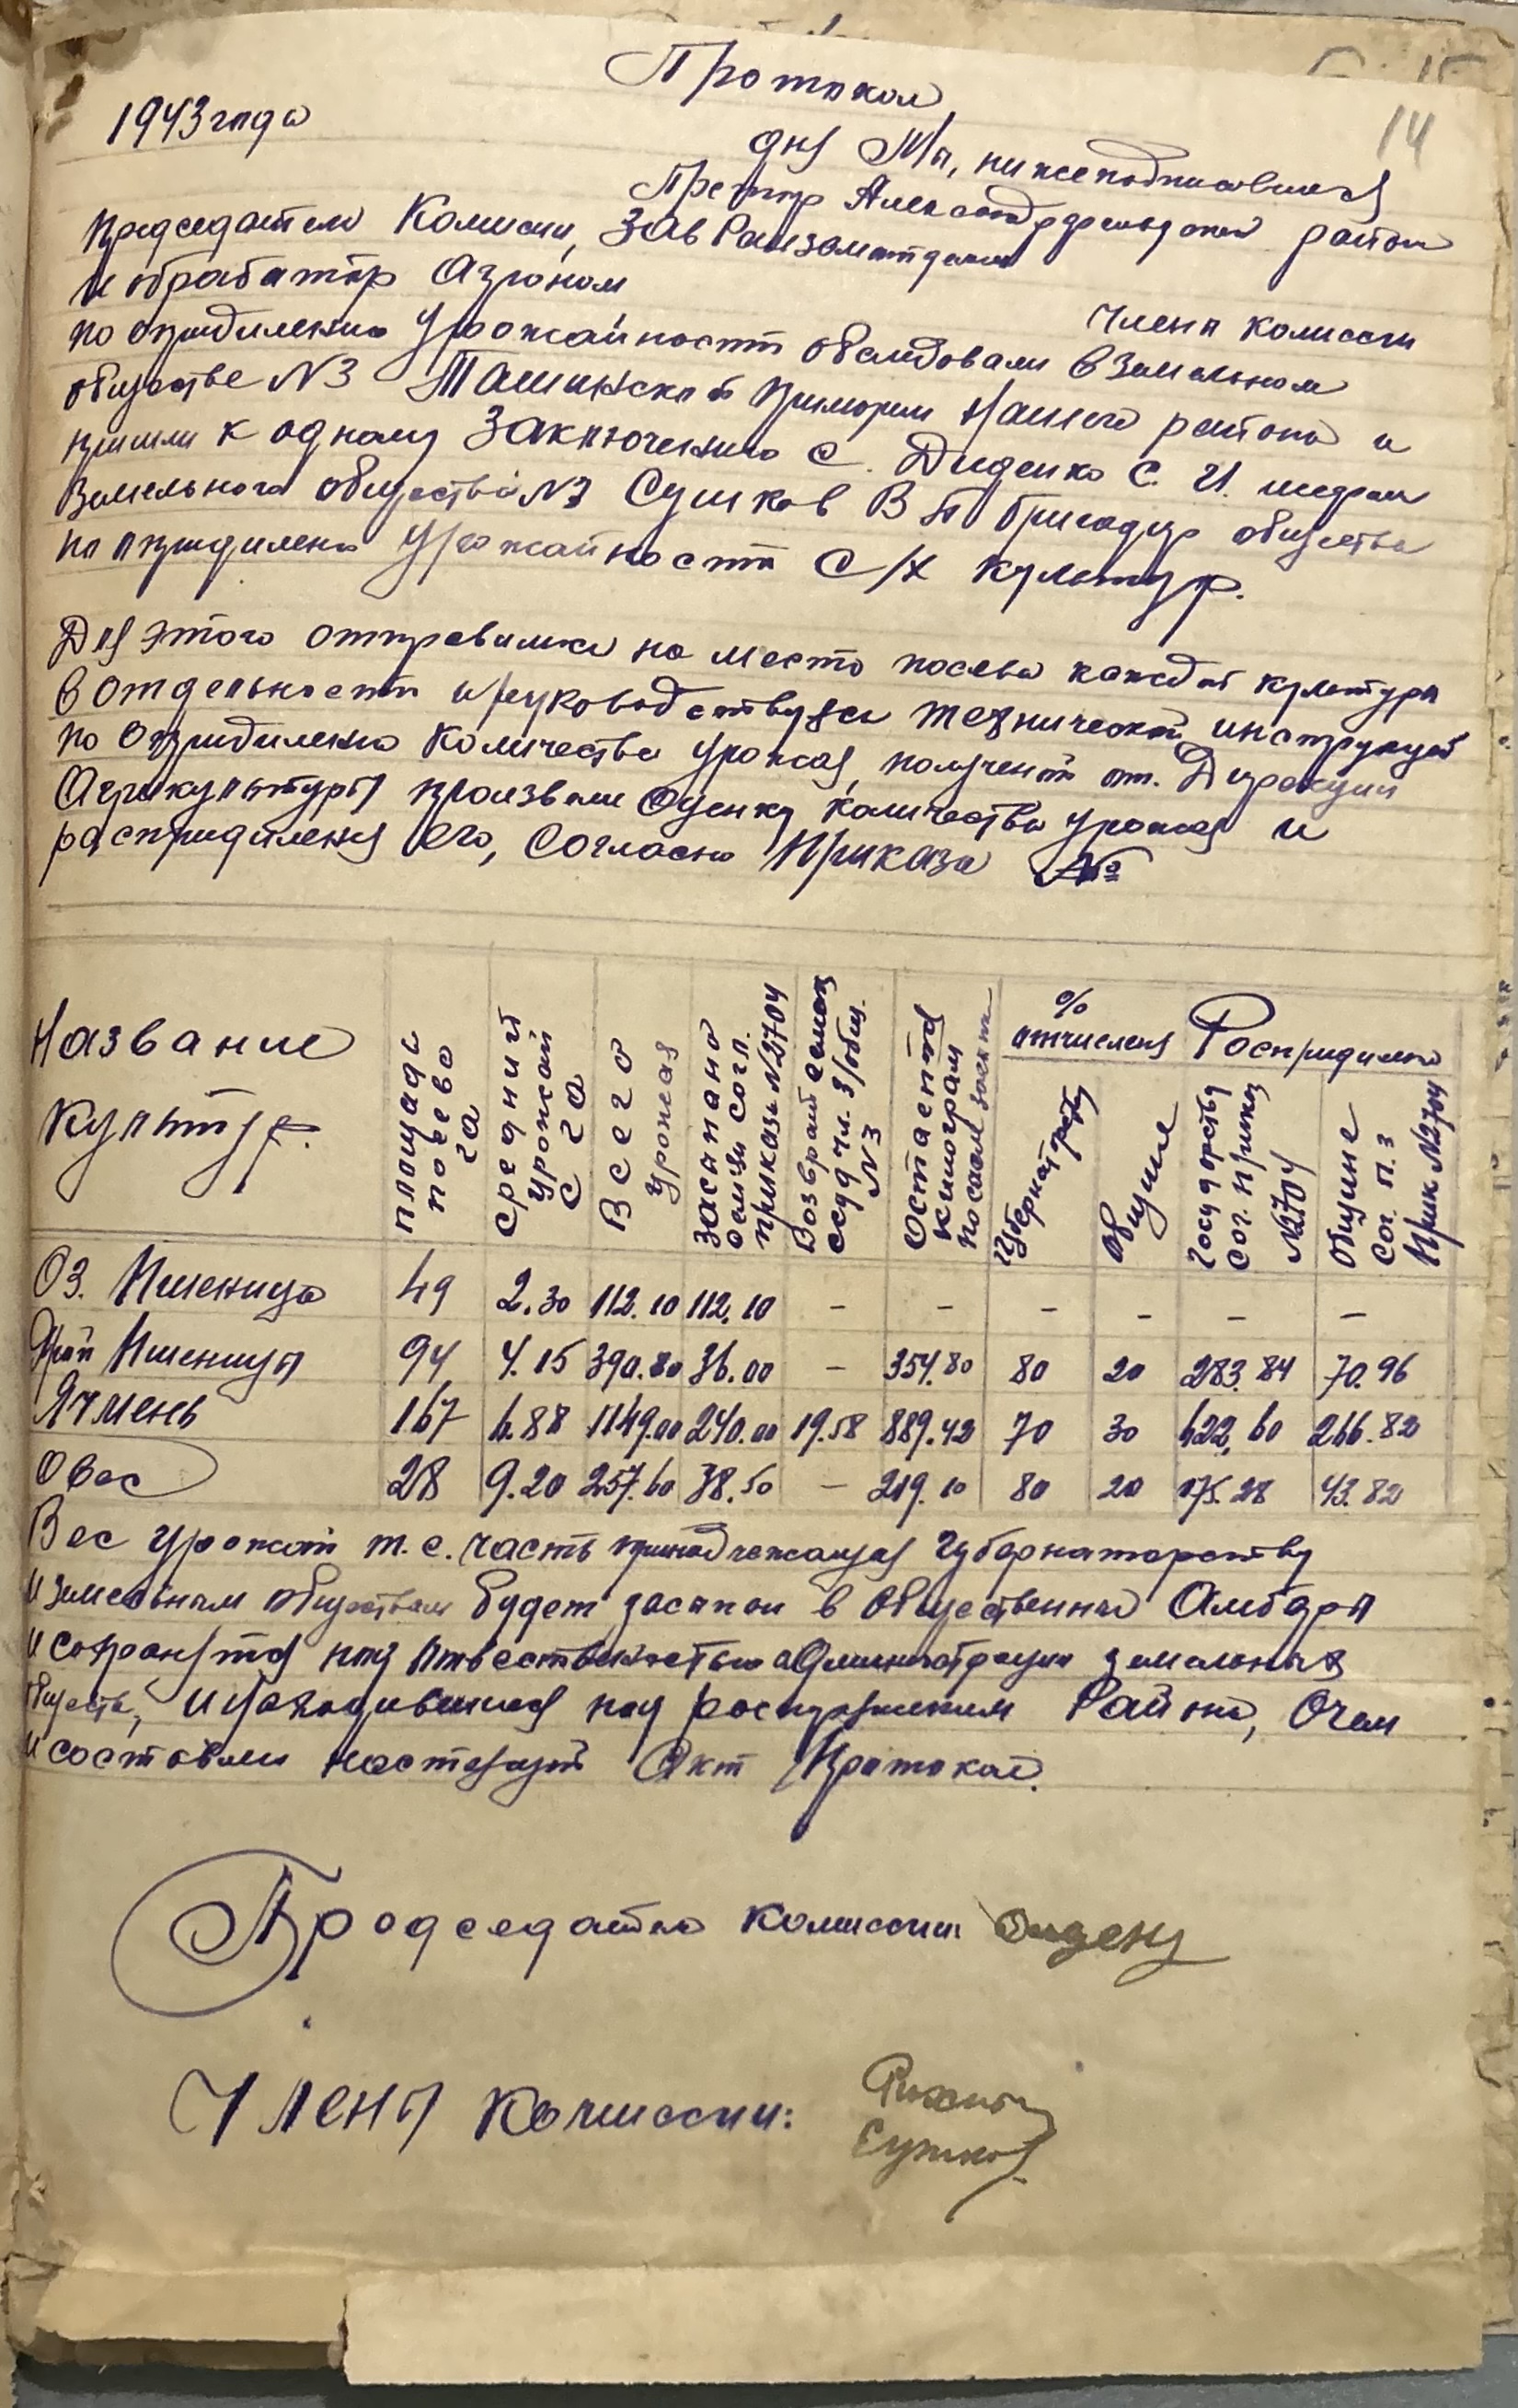 14
Протокол
1943 года
дня Мы, нижеподписавшиеся
Претор Александрфельдского района
председатель Комисии, Зав Райземотделом
и обработтр Агроном
члены комиссии
по опридилению Урожайности обслидовали в Земельном
обществе N3 Ташинской примории нашего района и
пришли к одному Заключению с. Диденко С. И. шефом
Земельного общества N3 Сушков В П бригадир общества
по опридилению урожайности С/х культур.
Для этого отправились на место посева каждой культуры
в отдельности и руководствуясь технической инструкцией
по опридилению Количества урожая, полученой от. Дирекции
Агрикультуры произвели Оценку количества урожая и
распридиления его, Согласно Приказа №
Название Культур.
Площадь посева га
Средний урожай с га
Всего урожая
Засыпано семян согл. приказа N2704
Возврат семян ссуд чл. З/общ. N3
Остается килограм после засыпки
% отчисления
Роспридилено
Губернаторству
Общине
Государству Сог. Приказ N2704
Общине Сог. п. 3 Прик N2704
Оз. Пшеница 49 2.30 112.10 112.10 – – – – – –
Яров Пшеница 94 4.15 390.80 36.00 – 354.80 80 20 283.84 70.96
Ячмень 167 6.88 1149.00 240.00 19.58 889.42 70 30 622,60 266.82
Овес 28 9.20 257.60 38.50 – 219.10 80 20 175.28 43.82
Вес урожай т.е. часть принадлежащая Губернаторству
и земельным обществам будет засыпон в общественные Амбары
и сохранятся под ответственостью администрации земельных
обществ, и находившися под роспоряжением Района, О чем
и составили настоящий Акт Протокол.
Председатель комиссии Диденко
Члены комиссии:
Сушков